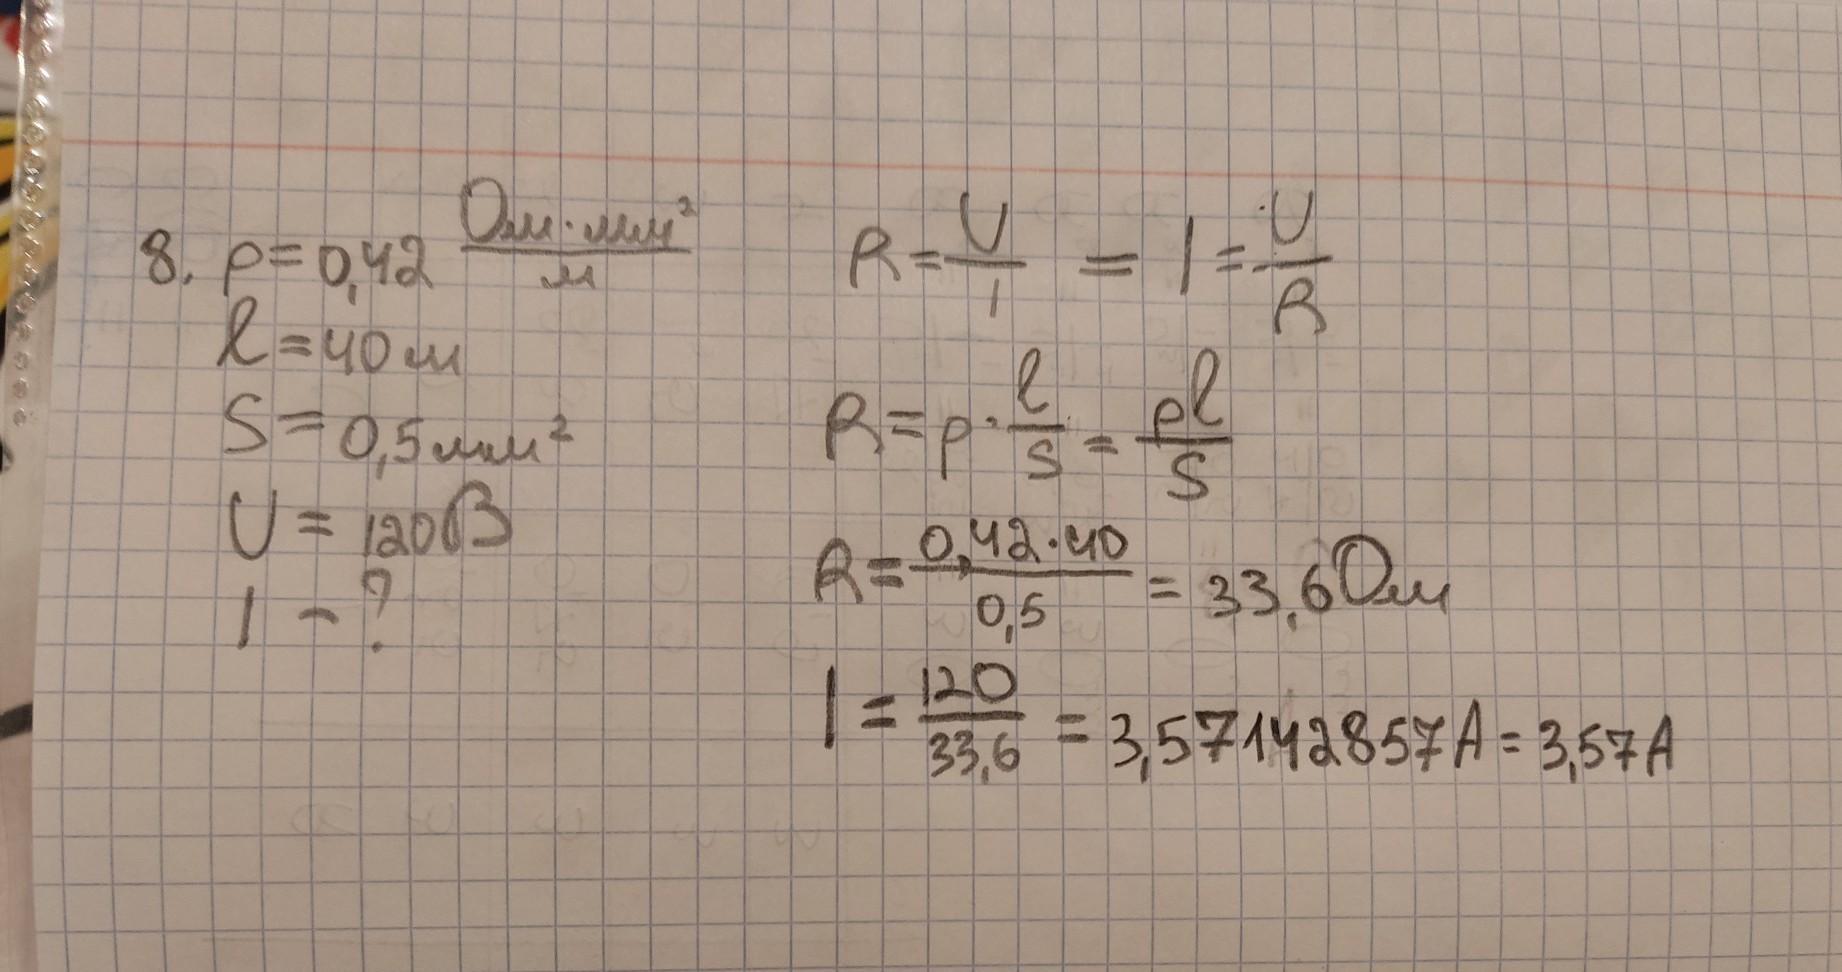 8. ρ = 0,42 Ом·мм²/м
l = 40 м
S = 0,5 мм²
U = 120 В
I - ?
R = U/I = I = U/R
R = ρ · l/S = ρl/S
R = 0,42·40/0,5 = 33,6 Ом
I = 120/33,6 = 3,57142857 А = 3,57 А